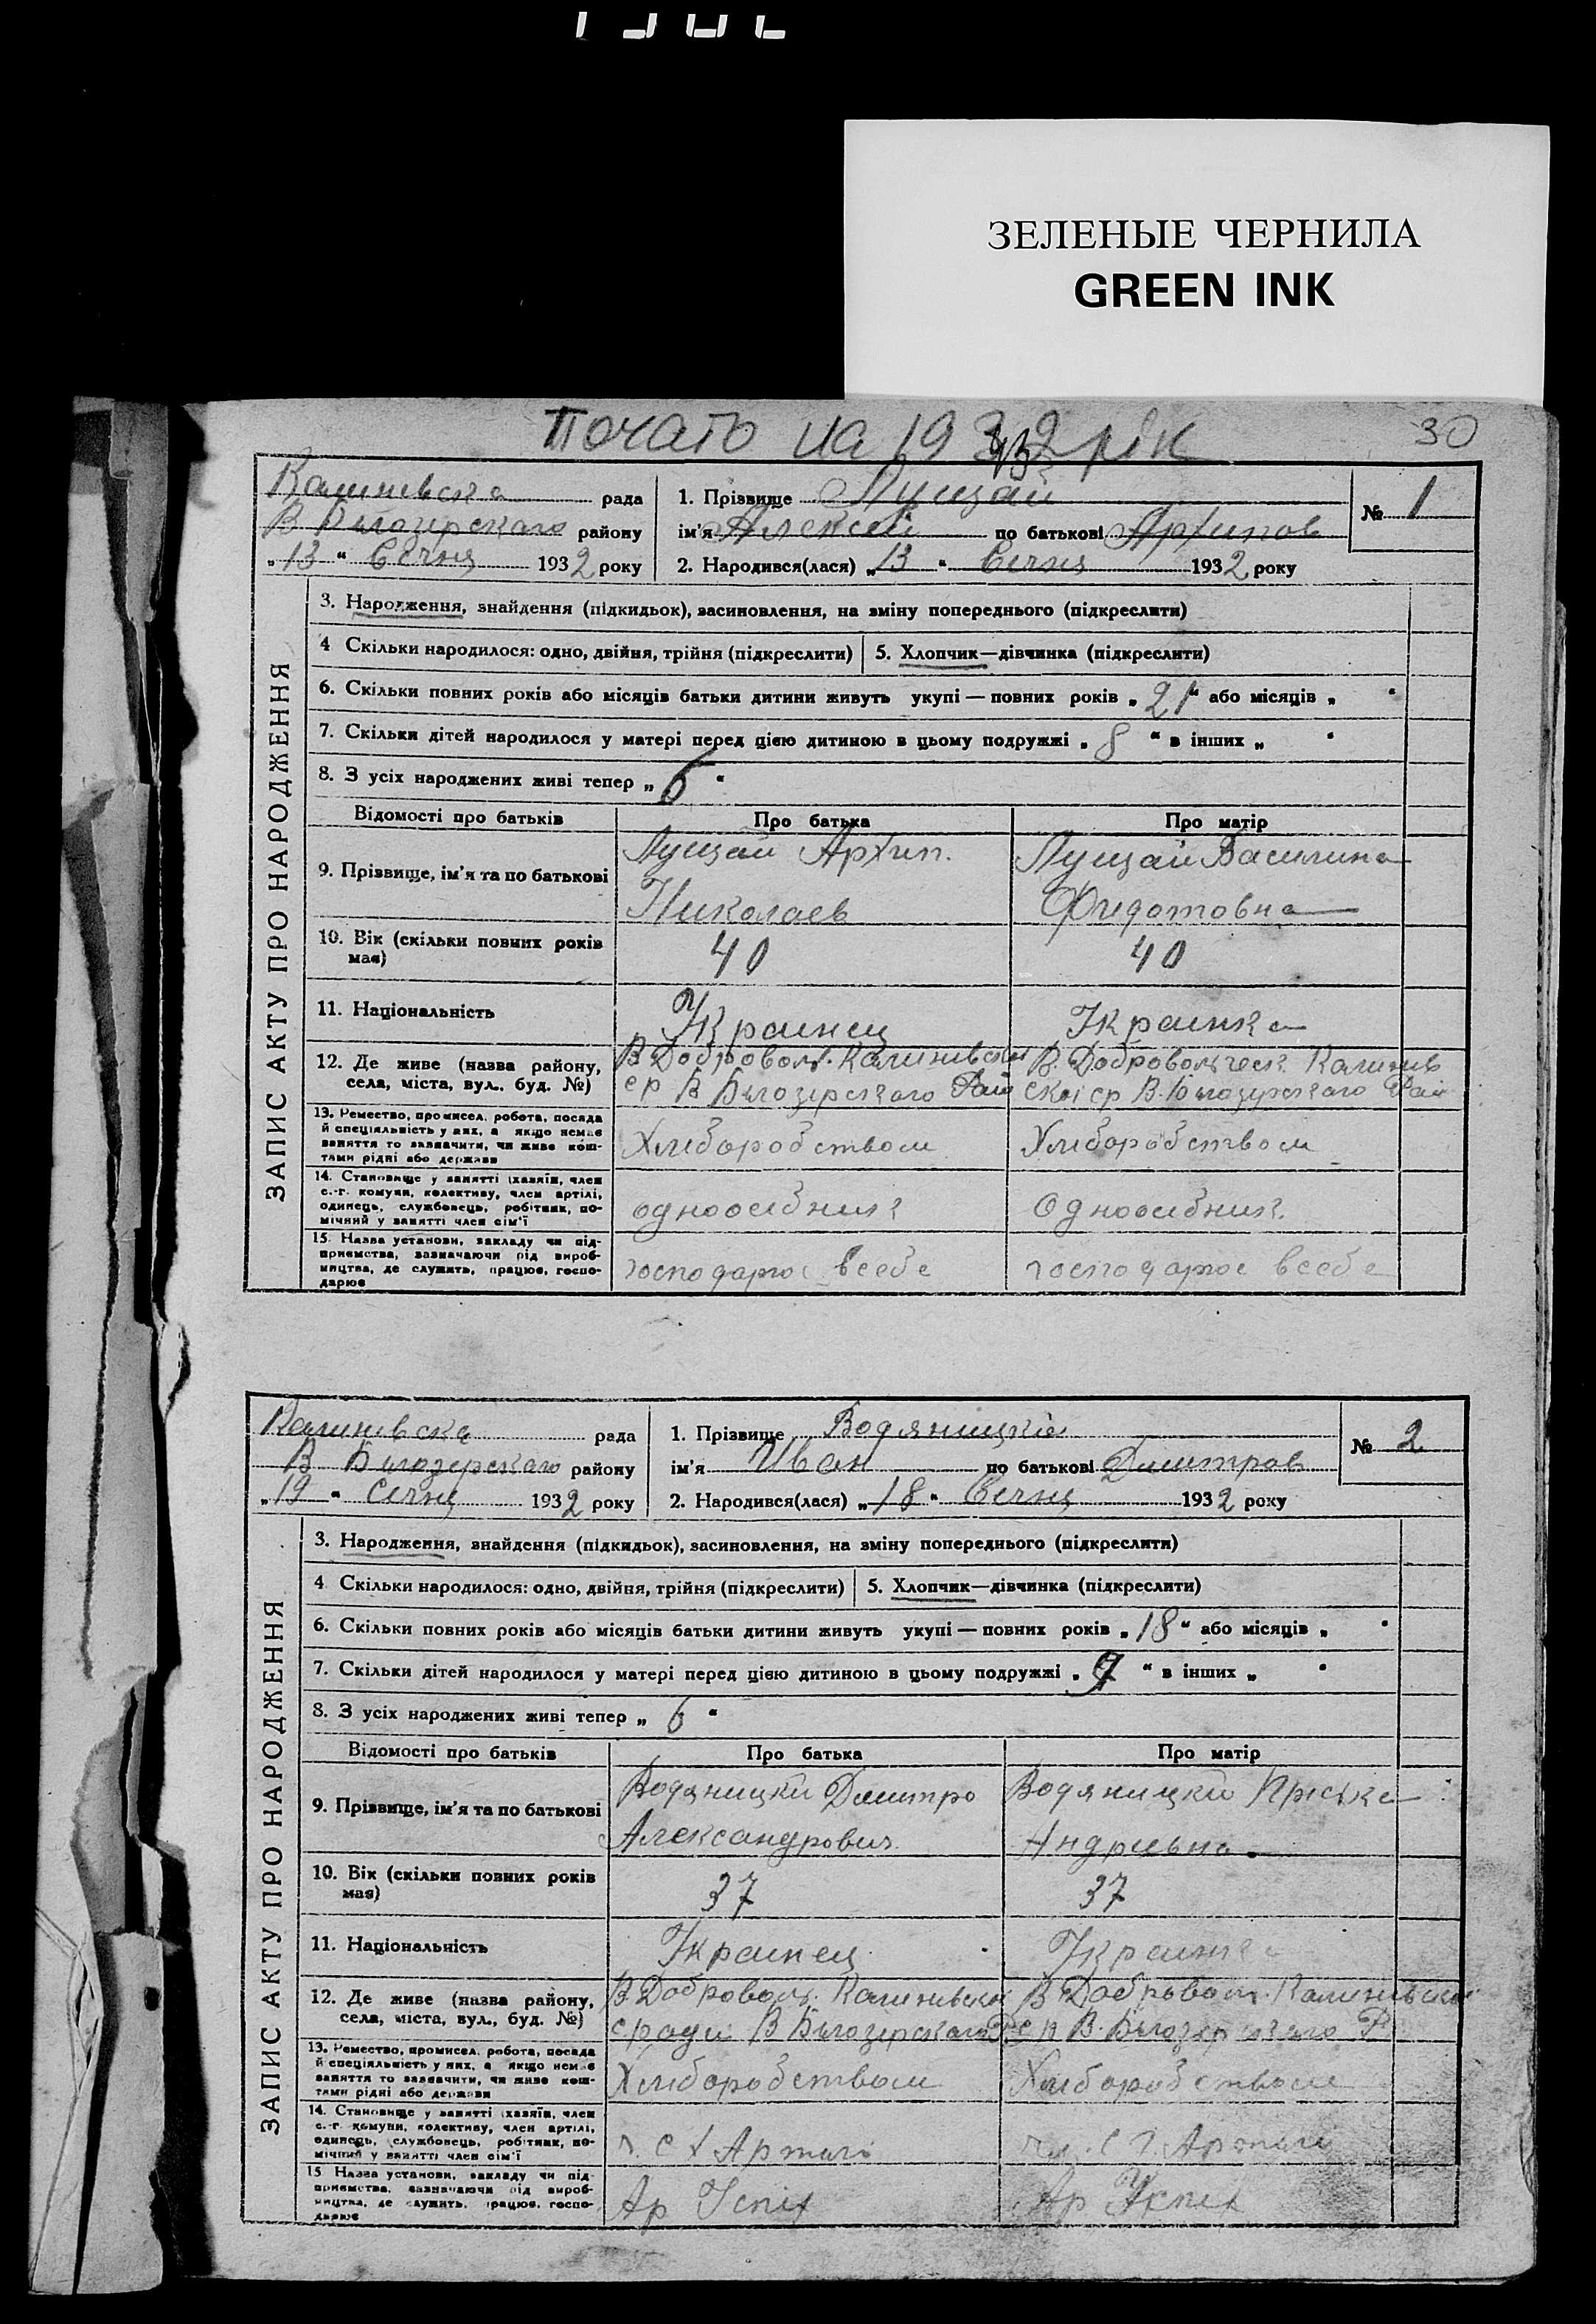 ЗЕЛЕНЫЕ ЧЕРНИЛА
GREEN INK
Почато на 1932 рік
30
Калинивска рада
В Билозерскаго району
„13“ Сечня 1932 року
1. Прізвище Лущай
ім'я Алексей по батькові Архипов
2. Народився(лася) „13“ Сечня 1932 року
№ 1
ЗАПИС АКТУ ПРО НАРОДЖЕННЯ
3. Народження, знайдення (підкидьок), засиновлення, на зміну попереднього (підкреслити)
4 Скільки народилося: одно, двійня, трійня (підкреслити)
5. Хлопчик—дівчинка (підкреслити)
6. Скільки повних років або місяців батьки дитини живуть укупі — повних років „21“ або місяців „ “
7. Скільки дітей народилося у матері перед цією дитиною в цьому подружжі „8“ в інших „ “
8. З усіх народжених живі тепер „6“
Відомості про батьків Про батька Про матір
9. Прізвище, ім'я та по батькові
Лущай Архип.
Николаев
Лущай Василина
Фидотовна
10. Вік (скільки повних років має)
40 40
11. Національність
Украинец Украинка
12. Де живе (назва району, села, міста, вул., буд. №)
В. Доброволь. Калинивскои
ср В Билозерскаго Рай
В. Добровольческ Калинив
скои ср В. Билозерскаго Рай
13. Ремество, промисел, робота, посада
й спеціяльність у них, а якщо немає
заняття то зазначити, чи живе кош-
тами рідні або держави
Хлиборобством Хлиборобством
14. Становище у занятті (хазяїн, член
с.-г. комуни, колективу, член артілі,
одинець, службовець, робітник, по-
мічний у занятті член сім'ї
одноосибник Одноосибник.
15. Назва установи, закладу чи під-
приємства, зазначаючи рід вироб-
ництва, де служить, працює, госпо-
дарює
господарює всебе господарює всебе
Калинивска рада
В Билозерскаго району
„19“ Сечня 1932 року
1. Прізвище Водяницкий
ім'я Иван по батькові Дмитров
2. Народився(лася) „18“ Сечня 1932 року
№ 2
ЗАПИС АКТУ ПРО НАРОДЖЕННЯ
3. Народження, знайдення (підкидьок), засиновлення, на зміну попереднього (підкреслити)
4 Скільки народилося: одно, двійня, трійня (підкреслити)
5. Хлопчик—дівчинка (підкреслити)
6. Скільки повних років або місяців батьки дитини живуть укупі — повних років „18“ або місяців „ “
7. Скільки дітей народилося у матері перед цією дитиною в цьому подружжі „7“ в інших „ “
8. З усіх народжених живі тепер „6“
Відомості про батьків Про батька Про матір
9. Прізвище, ім'я та по батькові
Водяницки Дмитро
Александрович
Водяницки Пріська
Андриевна.
10. Вік (скільки повних років має)
37 37
11. Національність
Украинец Украинка
12. Де живе (назва району, села, міста, вул., буд. №)
В. Доброволь. Калинивскои
сради В Билозерскаго
В Доброволь. Калинивскои
ср В. Билозерскаго Р
13. Ремество, промисел, робота, посада
й спеціяльність у них, а якщо немає
заняття то зазначити, чи живе кош-
тами рідні або держави
Хлиборобством Хлиборобством
14. Становище у занятті (хазяїн, член
с.-г. комуни, колективу, член артілі,
одинець, службовець, робітник, по-
мічний у занятті член сім'ї
Артили Артили
15 Назва установи, закладу чи під-
приємства, зазначаючи рід вироб-
ництва, де служить, працює, госпо-
дарює
Ар Успіх Ар Успіх